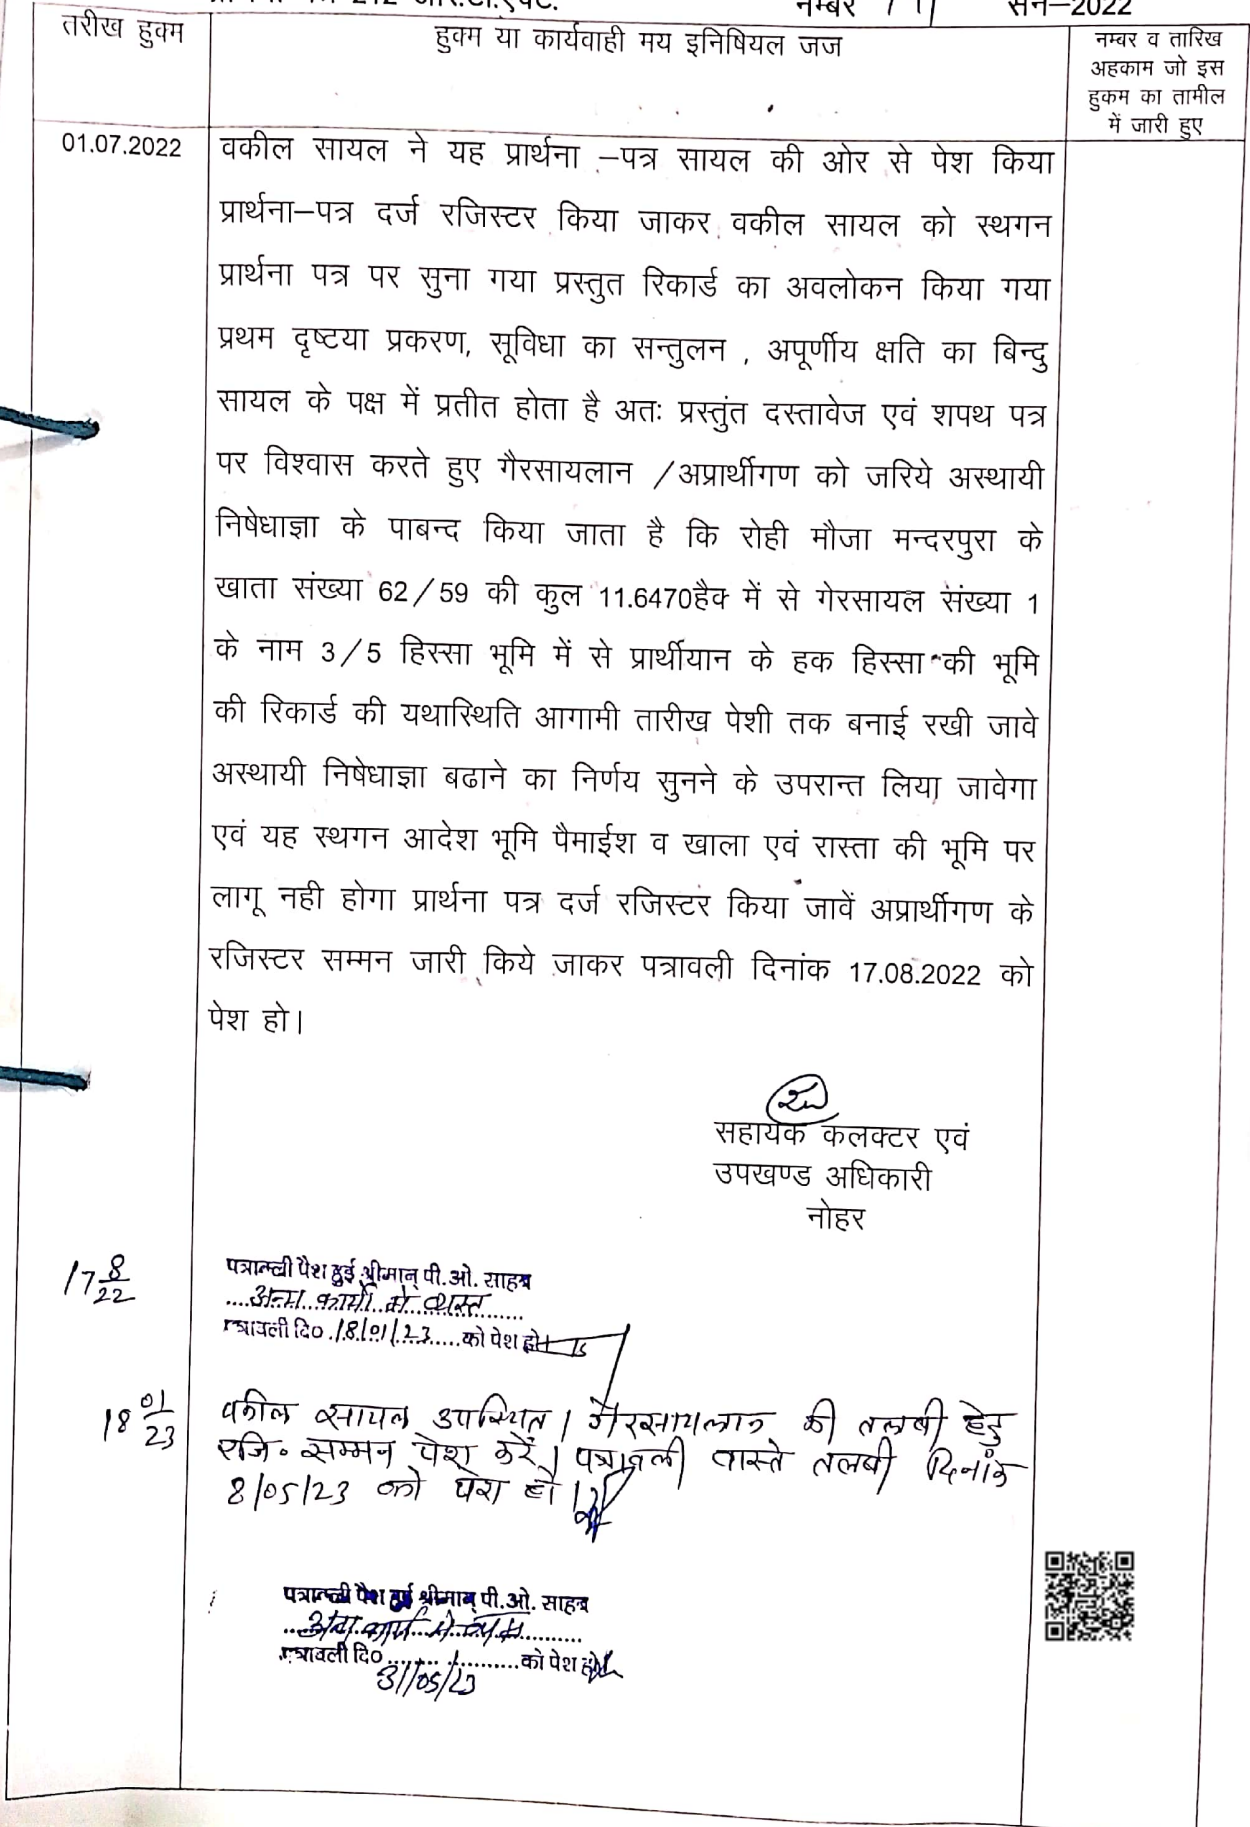 नम्बर सन–2022
तरीख हुक्म
हुक्म या कार्यवाही मय इनिषियल जज
नम्बर व तारिख
अहकाम जो इस
हुकम का तामील
में जारी हुए
01.07.2022
वकील सायल ने यह प्रार्थना –पत्र सायल की ओर से पेश किया
प्रार्थना–पत्र दर्ज रजिस्टर किया जाकर वकील सायल को स्थगन
प्रार्थना पत्र पर सुना गया प्रस्तुत रिकार्ड का अवलोकन किया गया
प्रथम दृष्टया प्रकरण, सूविधा का सन्तुलन , अपूर्णीय क्षति का बिन्दु
सायल के पक्ष में प्रतीत होता है अतः प्रस्तुंत दस्तावेज एवं शपथ पत्र
पर विश्वास करते हुए गैरसायलान /अप्रार्थीगण को जरिये अस्थायी
निषेधाज्ञा के पाबन्द किया जाता है कि रोही मौजा मन्दरपुरा के
खाता संख्या 62/59 की कुल 11.6470हैक में से गेरसायल संख्या 1
के नाम 3/5 हिस्सा भूमि में से प्रार्थीयान के हक हिस्सा की भूमि
की रिकार्ड की यथास्थिति आगामी तारीख पेशी तक बनाई रखी जावे
अस्थायी निषेधाज्ञा बढाने का निर्णय सुनने के उपरान्त लिया जावेगा
एवं यह स्थगन आदेश भूमि पैमाईश व खाला एवं रास्ता की भूमि पर
लागू नही होगा प्रार्थना पत्र दर्ज रजिस्टर किया जावें अप्रार्थीगण के
रजिस्टर सम्मन जारी किये जाकर पत्रावली दिनांक 17.08.2022 को
पेश हो।
सहायक कलक्टर एवं
उपखण्ड अधिकारी
नोहर
17 8/22
पत्रावली पेश हुई श्रीमान् पी.ओ. साहब
अन्य कार्यो में व्यस्त
पत्रावली दि० 18/01/23 को पेश हो
18 01/23
वकील सायल उपस्थित। गैरसायलान की तलबी हेतु
रजि० सम्मन पेश करें। पत्रावली वास्ते तलबी दिनांक
8/05/23 को पेश हो।
पत्रावली पेश हुई श्रीमान् पी.ओ. साहब
अन्य कार्य में व्यस्त
पत्रावली दि० को पेश हो
31/05/23